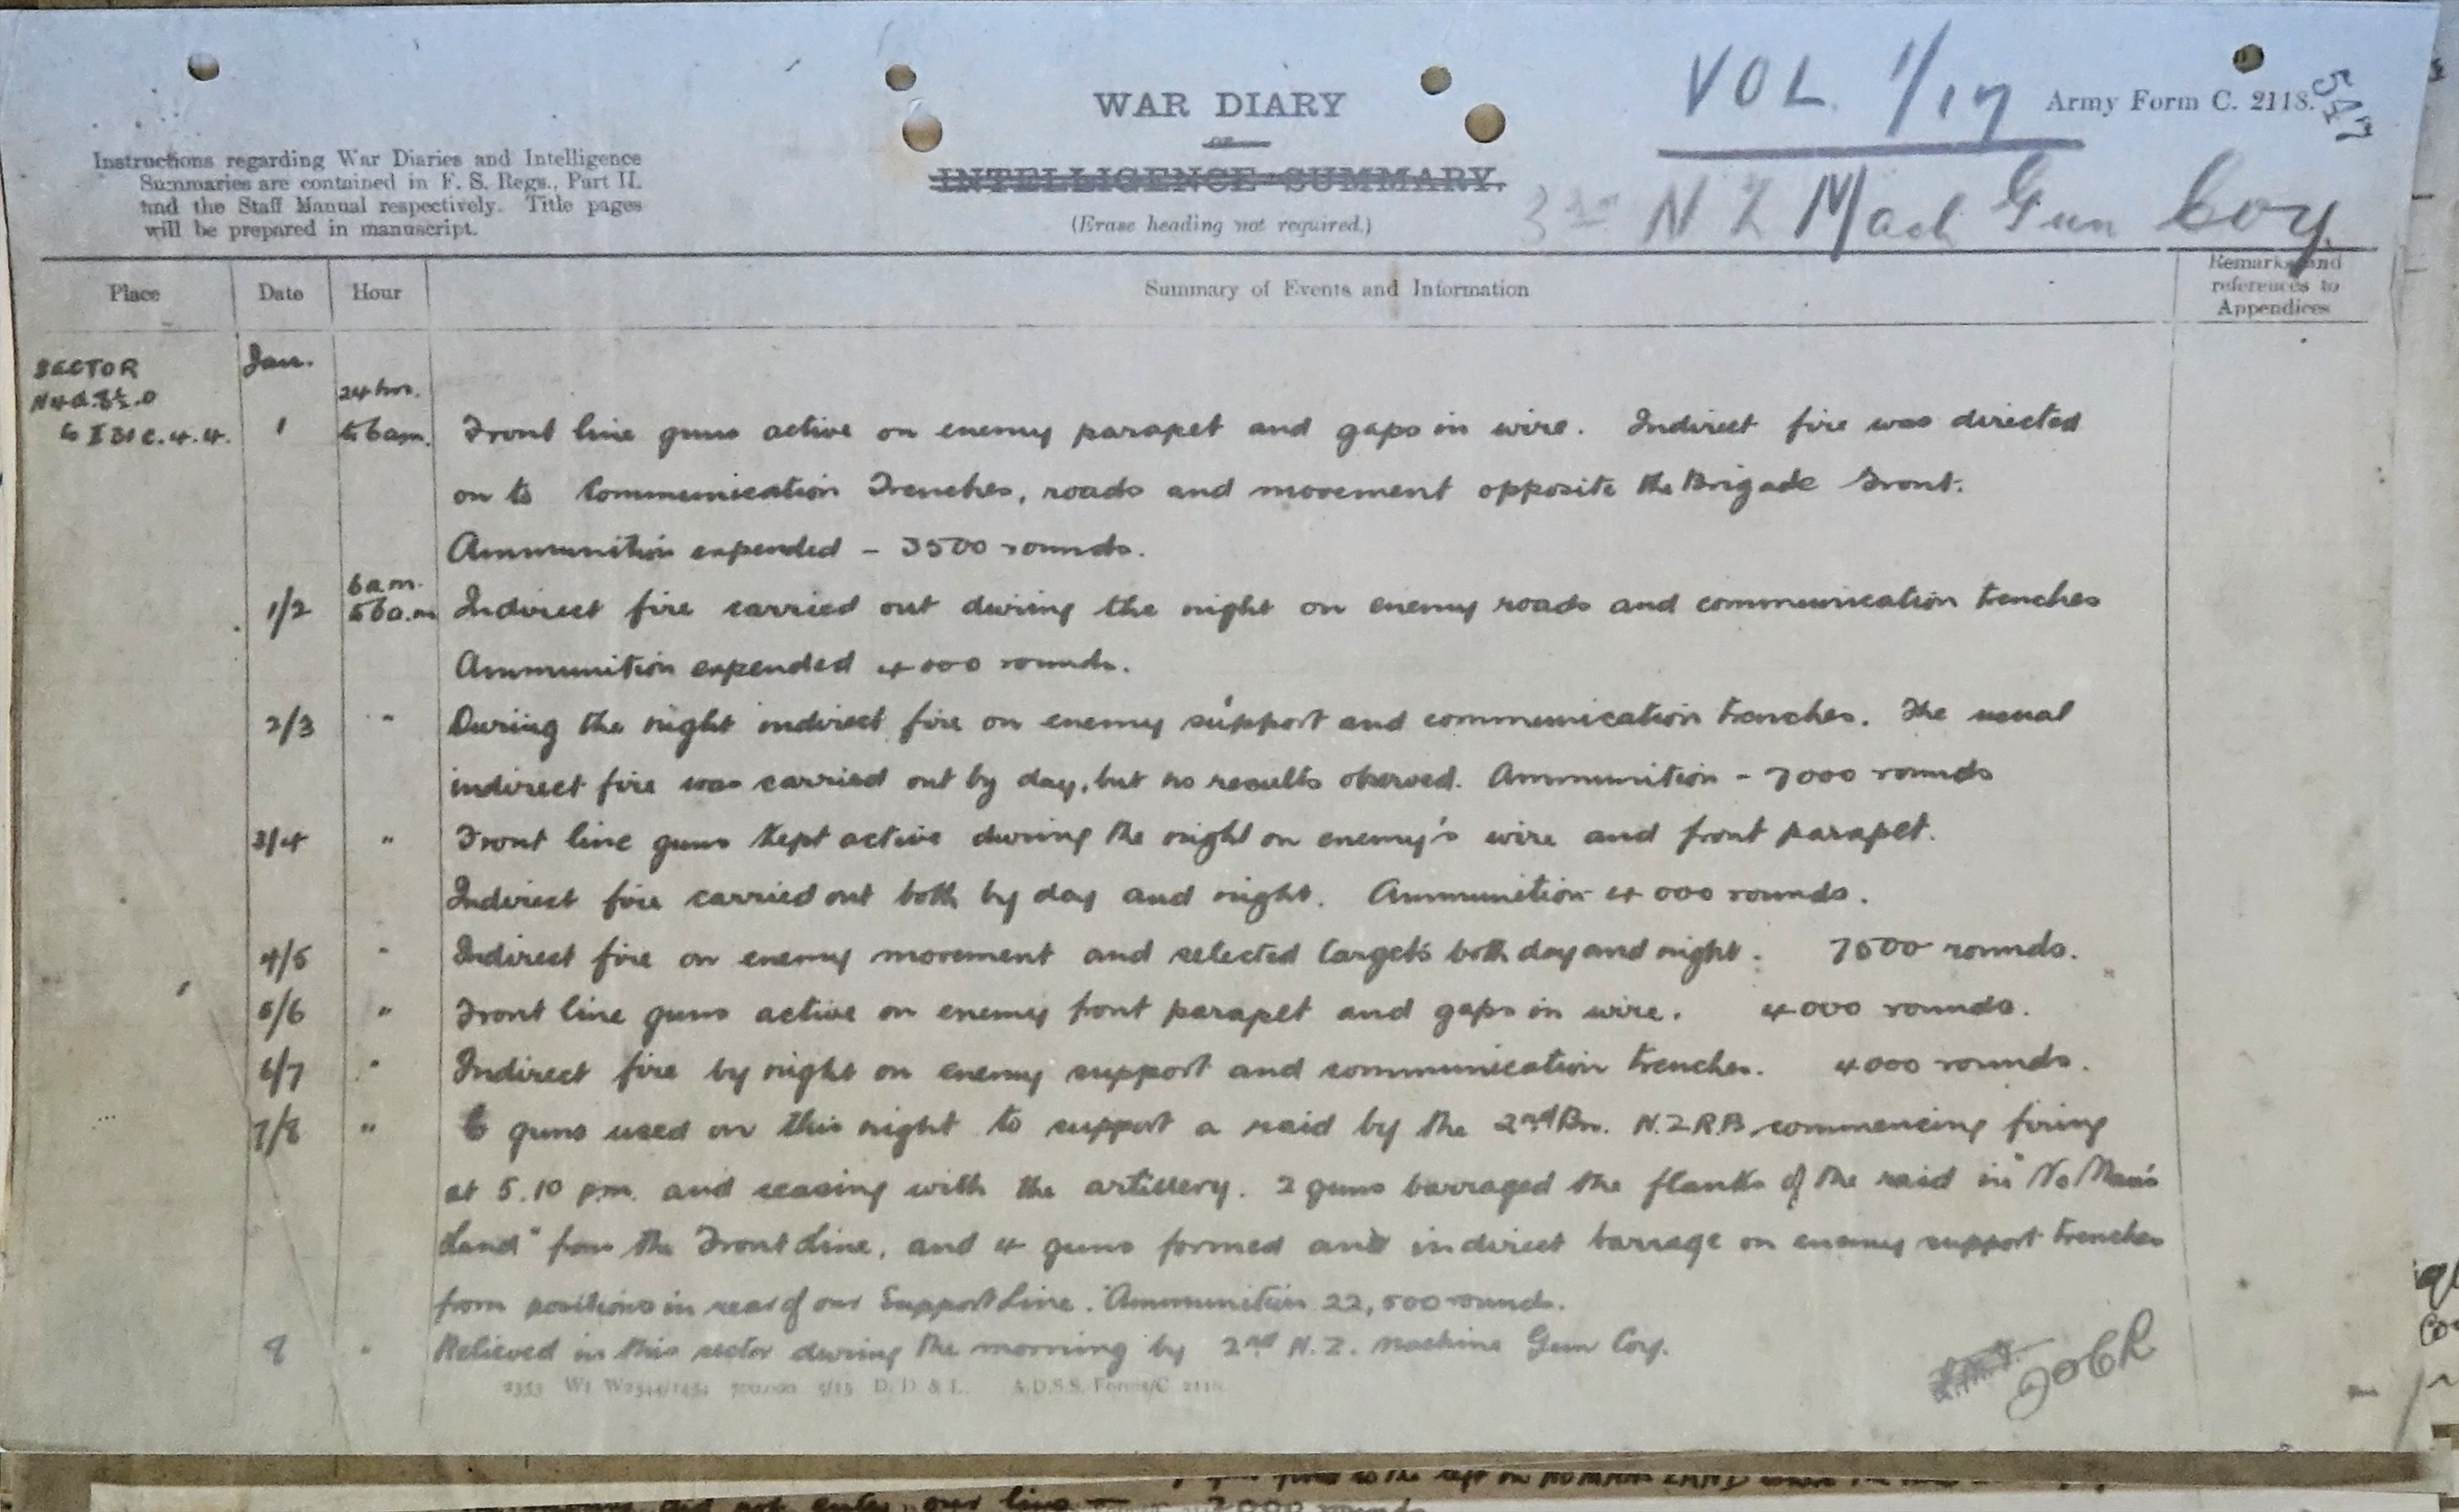 VOL 1/17 Army Form C. 2118.
547
WAR DIARY
OR
INTELLIGENCE SUMMARY.
(Erase heading not required.)
Instructions regarding War Diaries and Intelligence
Summaries are contained in F. S. Regs., Part II.
and the Staff Manual respectively. Title pages
will be prepared in manuscript.
3rd N Z Mach Gun Coy
Place Date Hour Summary of Events and Information Remarks and
references to
Appendices
SECTOR Jan.
N4d.8½.0 24 hrs.
to I31c.4.4. 1 to 6am. Front line guns active on enemy parapet and gaps in wire. Indirect fire was directed
on to Communication Trenches, roads and movement opposite the Brigade Front.
Ammunition expended - 3500 rounds.
6am.
1/2 to 6a.m Indirect fire carried out during the night on enemy roads and communication trenches
Ammunition expended 4000 rounds.
2/3 " During the night indirect fire on enemy support and communication trenches. The usual
indirect fire was carried out by day, but no results oberved. Ammunition - 7000 rounds
3/4 " Front line guns kept active during the night on enemy's wire and front parapet.
Indirect fire carried out both by day and night. Ammunition 4000 rounds.
4/5 " Indirect fire on enemy movement and selected targets both day and night. 7500 rounds.
5/6 " Front line guns active on enemy front parapet and gaps in wire. 4000 rounds.
6/7 " Indirect fire by night on enemy support and communication trenches. 4000 rounds.
7/8 " 6 guns used on this night to support a raid by the 2nd Bn. N.Z.R.B commencing firing
at 5.10 p.m. and ceasing with the artillery. 2 guns barraged the flanks of the raid in "No Man's
Land" from the Front Line, and 4 guns formed an indirect barrage on enemy support trenches
from positions in rear of our Support Line. Ammunition 22,500 rounds.
8 " Relieved in this sector during the morning by 2nd N.Z. Machine Gun Coy.
2353 Wt 700,000 5/15 D. D & L. A.D.S.S. Forms/C 2118